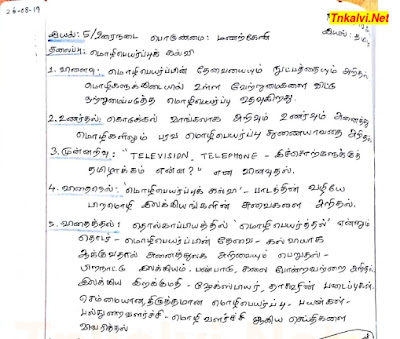 26-08-19
Tnkalvi.Net
இயல்: 5/உரைநடை பொருண்மை: மணற்கேணி
தலைப்பு: மொழிபெயர்ப்புக் கல்வி
1. விளைவு: மொழிபெயர்ப்பின் தேவையையும் நுட்பத்தையும் அறிதல்
மொழிகளுக்கிடையில் உள்ள வேற்றுமைகளை விட்டு
ஒற்றுமைப்படுத்த மொழிபெயர்ப்பு உதவுகிறது.
2. உணர்தல்: கொடுக்கல் வாங்கலாக அறிவும் உணர்வும் அனைத்து
மொழிகளிலும் பரவ மொழிபெயர்ப்பு துணையாவதை அறிதல்.
3. முன்னறிவு: "TELEVISION, TELEPHONE - இச்சொற்களுக்குத்
தமிழாக்கம் என்ன?" என வினவுதல்.
4. விதைநெல்: 'மொழிபெயர்ப்புக் கல்வி' - பாடத்தின் வழியே
பிறமொழி இலக்கியங்களின் சுவைகளை அறிதல்.
5. விதைத்தல்: தொல்காப்பியத்தில் 'மொழிபெயர்த்தல்' என்னும்
தொடர் - மொழிபெயர்ப்பின் தேவை - கல்வியாக
ஆக்குவதால் அனைத்துலக அறிவையும் பெறுதல் -
பிறநாட்டு இலக்கியம், பண்பாடு, கலை போன்றவற்றை அறிதல்
இலக்கிய இறக்குமதி - ஷேக்ஸ்பியர், தாகூரின் படைப்புகள்.
செம்மையான, திருத்தமான மொழிபெயர்ப்பு - பயன்கள் -
பல்துறை வளர்ச்சி - மொழி வளர்ச்சி ஆகிய செய்திகளை
விவரித்தல்